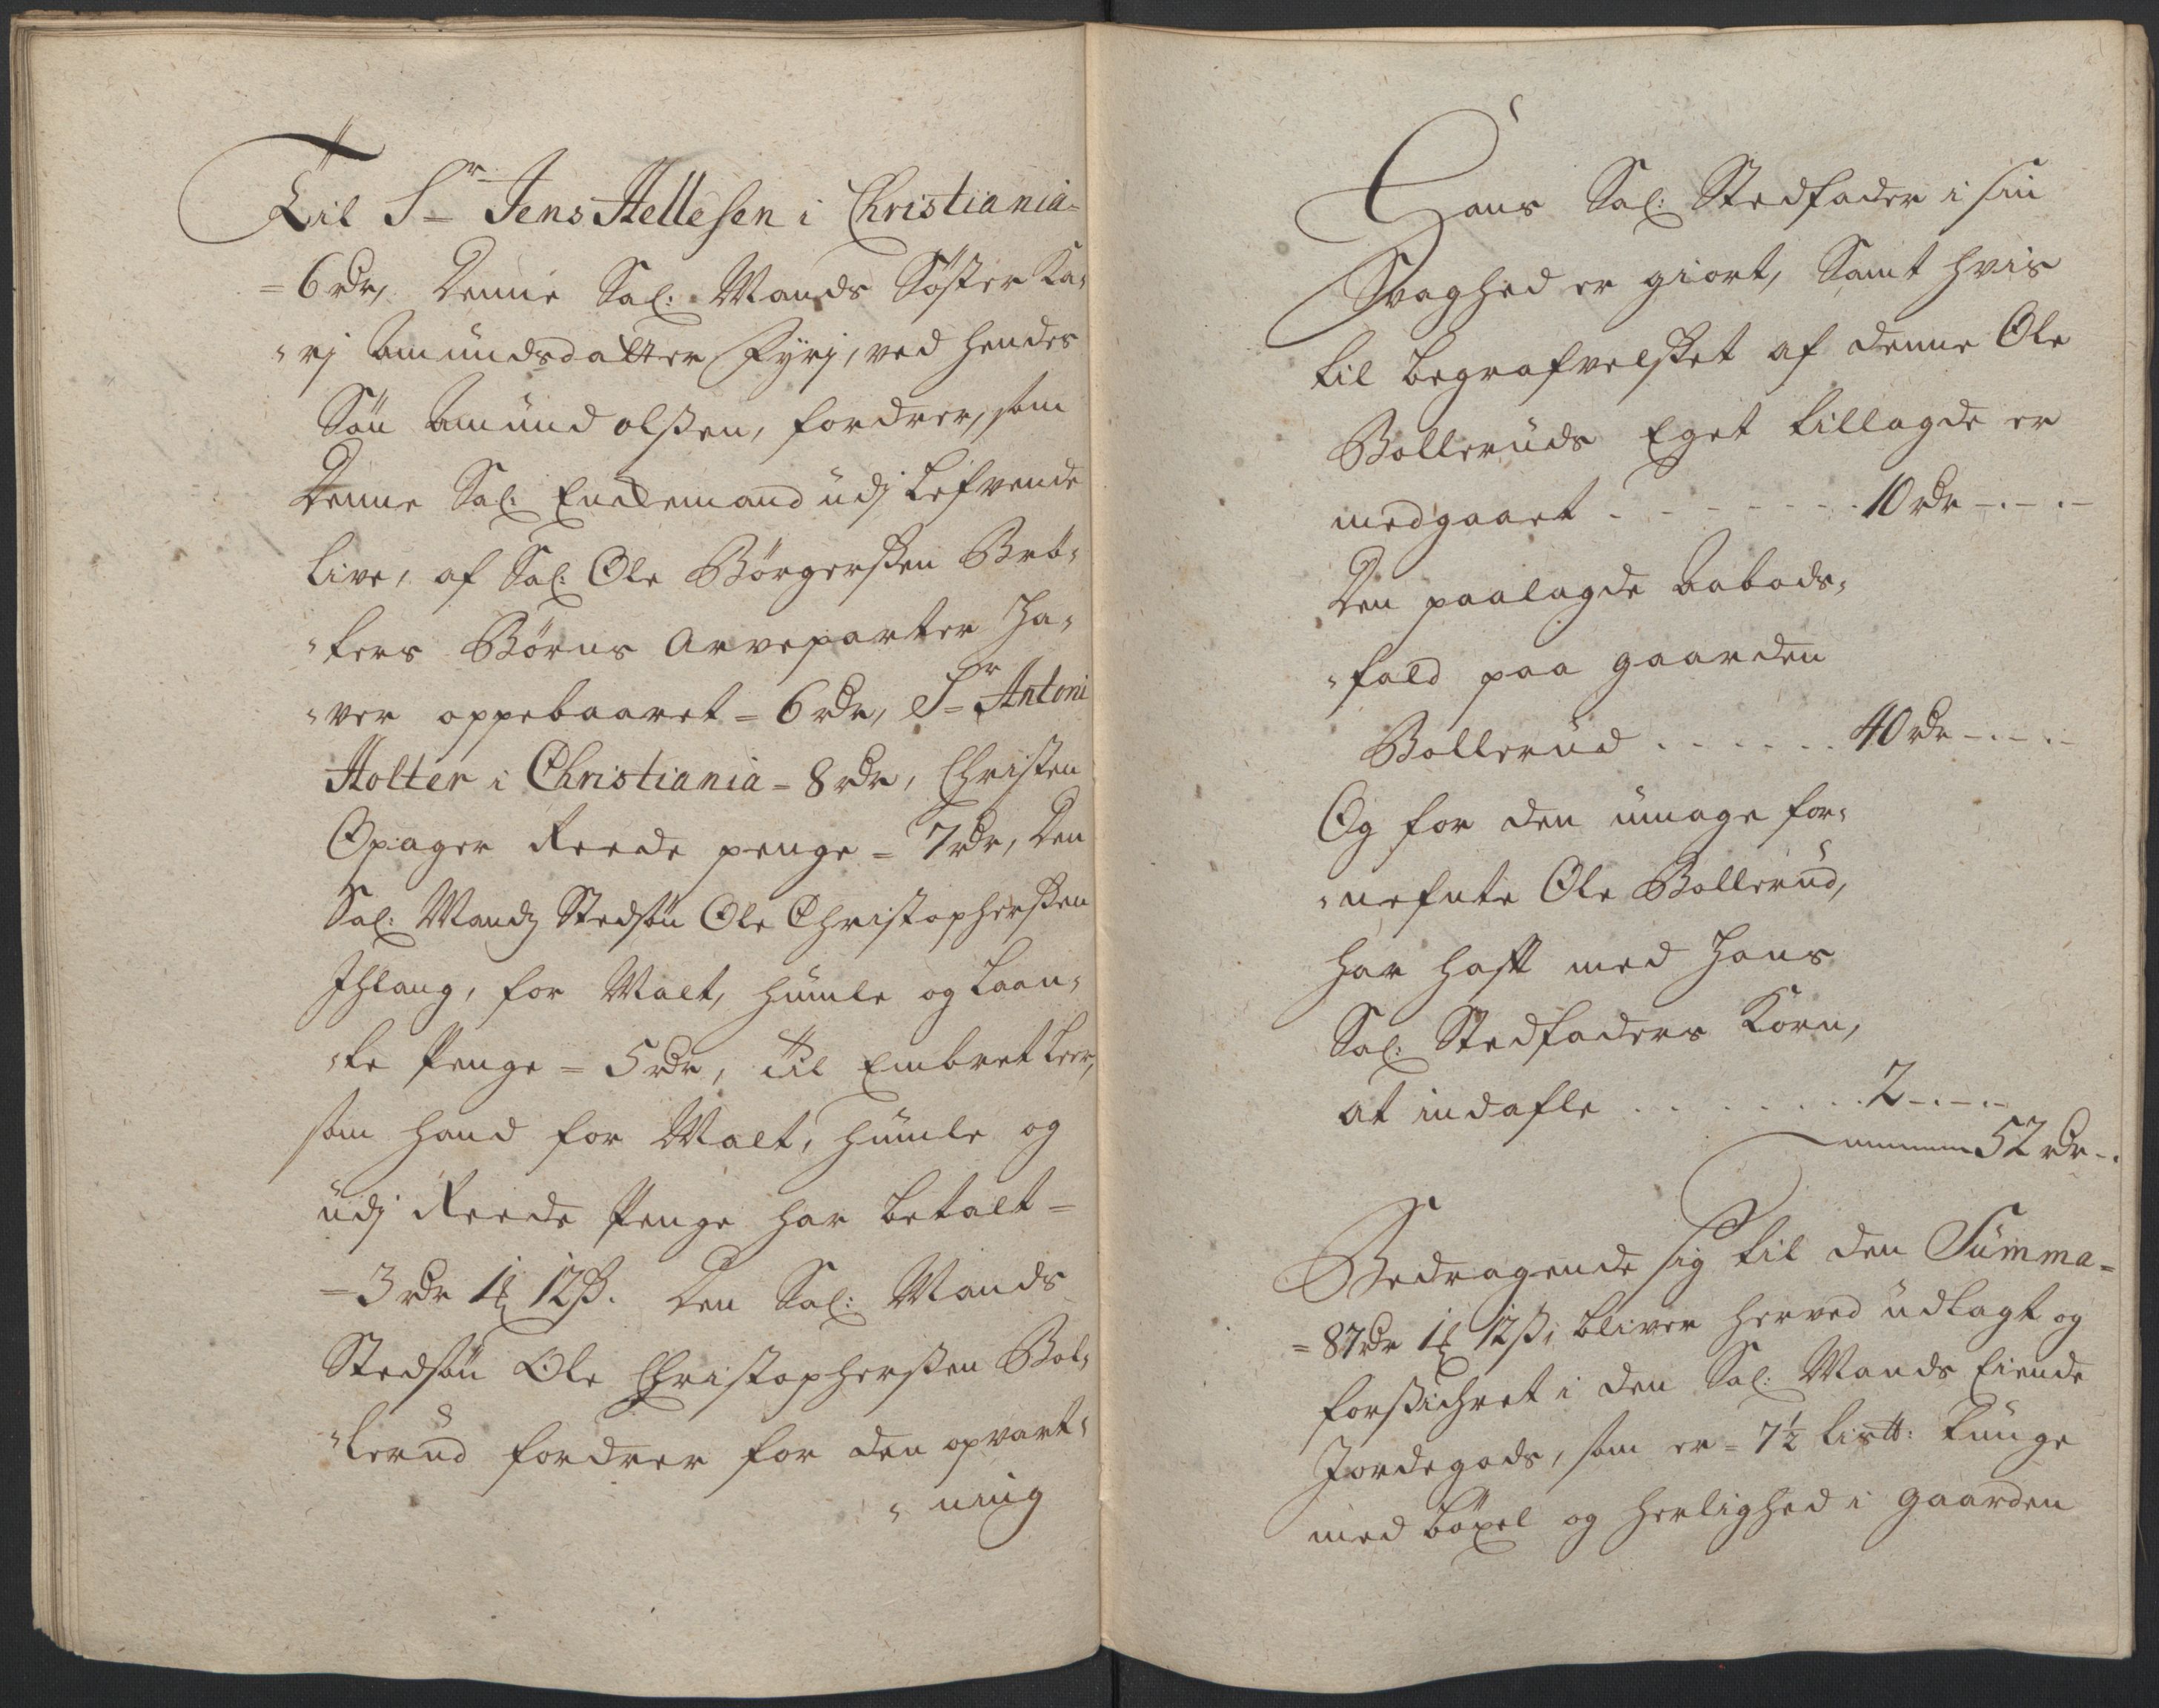 Til Sr Jens Hellesen i Christiania=
=6 rdr, Denne Sal: Mands Søster Ka,
,rj Amundsdatter Fyrj, ved hendes
Søn Amund olssen, fordrer, som
Denne Sal: Enckemand udj Lefvende
Live, af Sal: Ole Børgerssen Brö,
,ters Børns Arveparter Ha,
,ver oppebaaret = 6 rdr, Sr Antoni
Holter i Christiania = 8 rdr, Christen
Opager Reede penge = 7 rdr, Den
Sal: Mands Stedsøn Ole Christopherssen
Ihlang, for Malt, humle og Laan,
,te Penge = 5 rdr, til Embret Leer,
som hand for Malt, humle og
udj Reede Penge har betalt =
=3 rdr 1 12 ß. Den Sal: Mands
Stedsøn Ole Christopherssen Bol,
,lerud fordrer for den opvart,
,ning
Hans Sal: Stedfader i sin
Svaghed er giort, Samt hvis
til begrafvelsset af denne Ole
Bolleruds Eget tillagde er
medgaaet - - - - - - 10 rdr -.-.-
Den paalagde Aabods,
,fald paa gaarden
Bollerud . . . . . . 40 rdr -.-.-
Og for den umage for,
,nefnte Ole Bollerud,
har hafft med Hans
Sal: Stedfaders Korn,
at indafle . . . . . . . 2 -.-.-
52 rdr -.
Bedragende sig til den Summa=
=87 rdr 1 12 ß, bliver herved udlagt og
forssichret i den Sal: Mands Eiende
Jordegods, som er = 7½ Lis℔: Tunge
med böxel og herlighed i gaarden